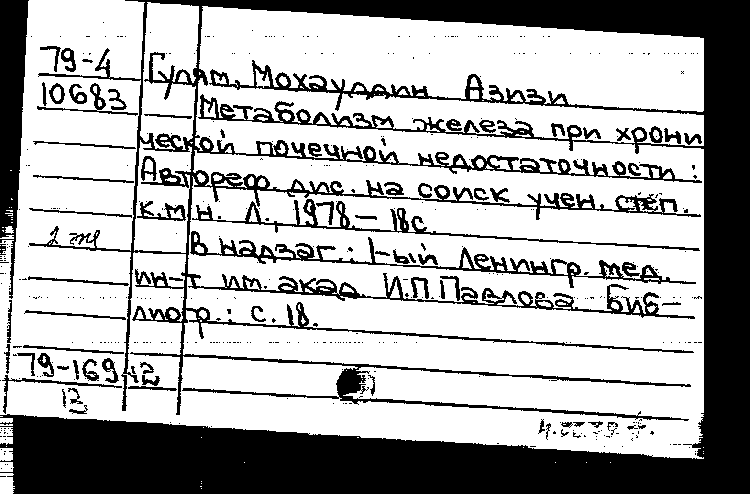 79-4
10683
Гулям, Мохауддин Азизи
Метаболизм железа при хрони
ческой почечной недостаточности:
Автореф. дис. на соиск учен. степ.
к.м.н. Л., 1978.- 18с.
2
В надзаг.: I-ый Ленингр. мед.
ин-т им. акад. И.П.Павлова. Биб-
лиогр.: с. 18.
79-16942
13